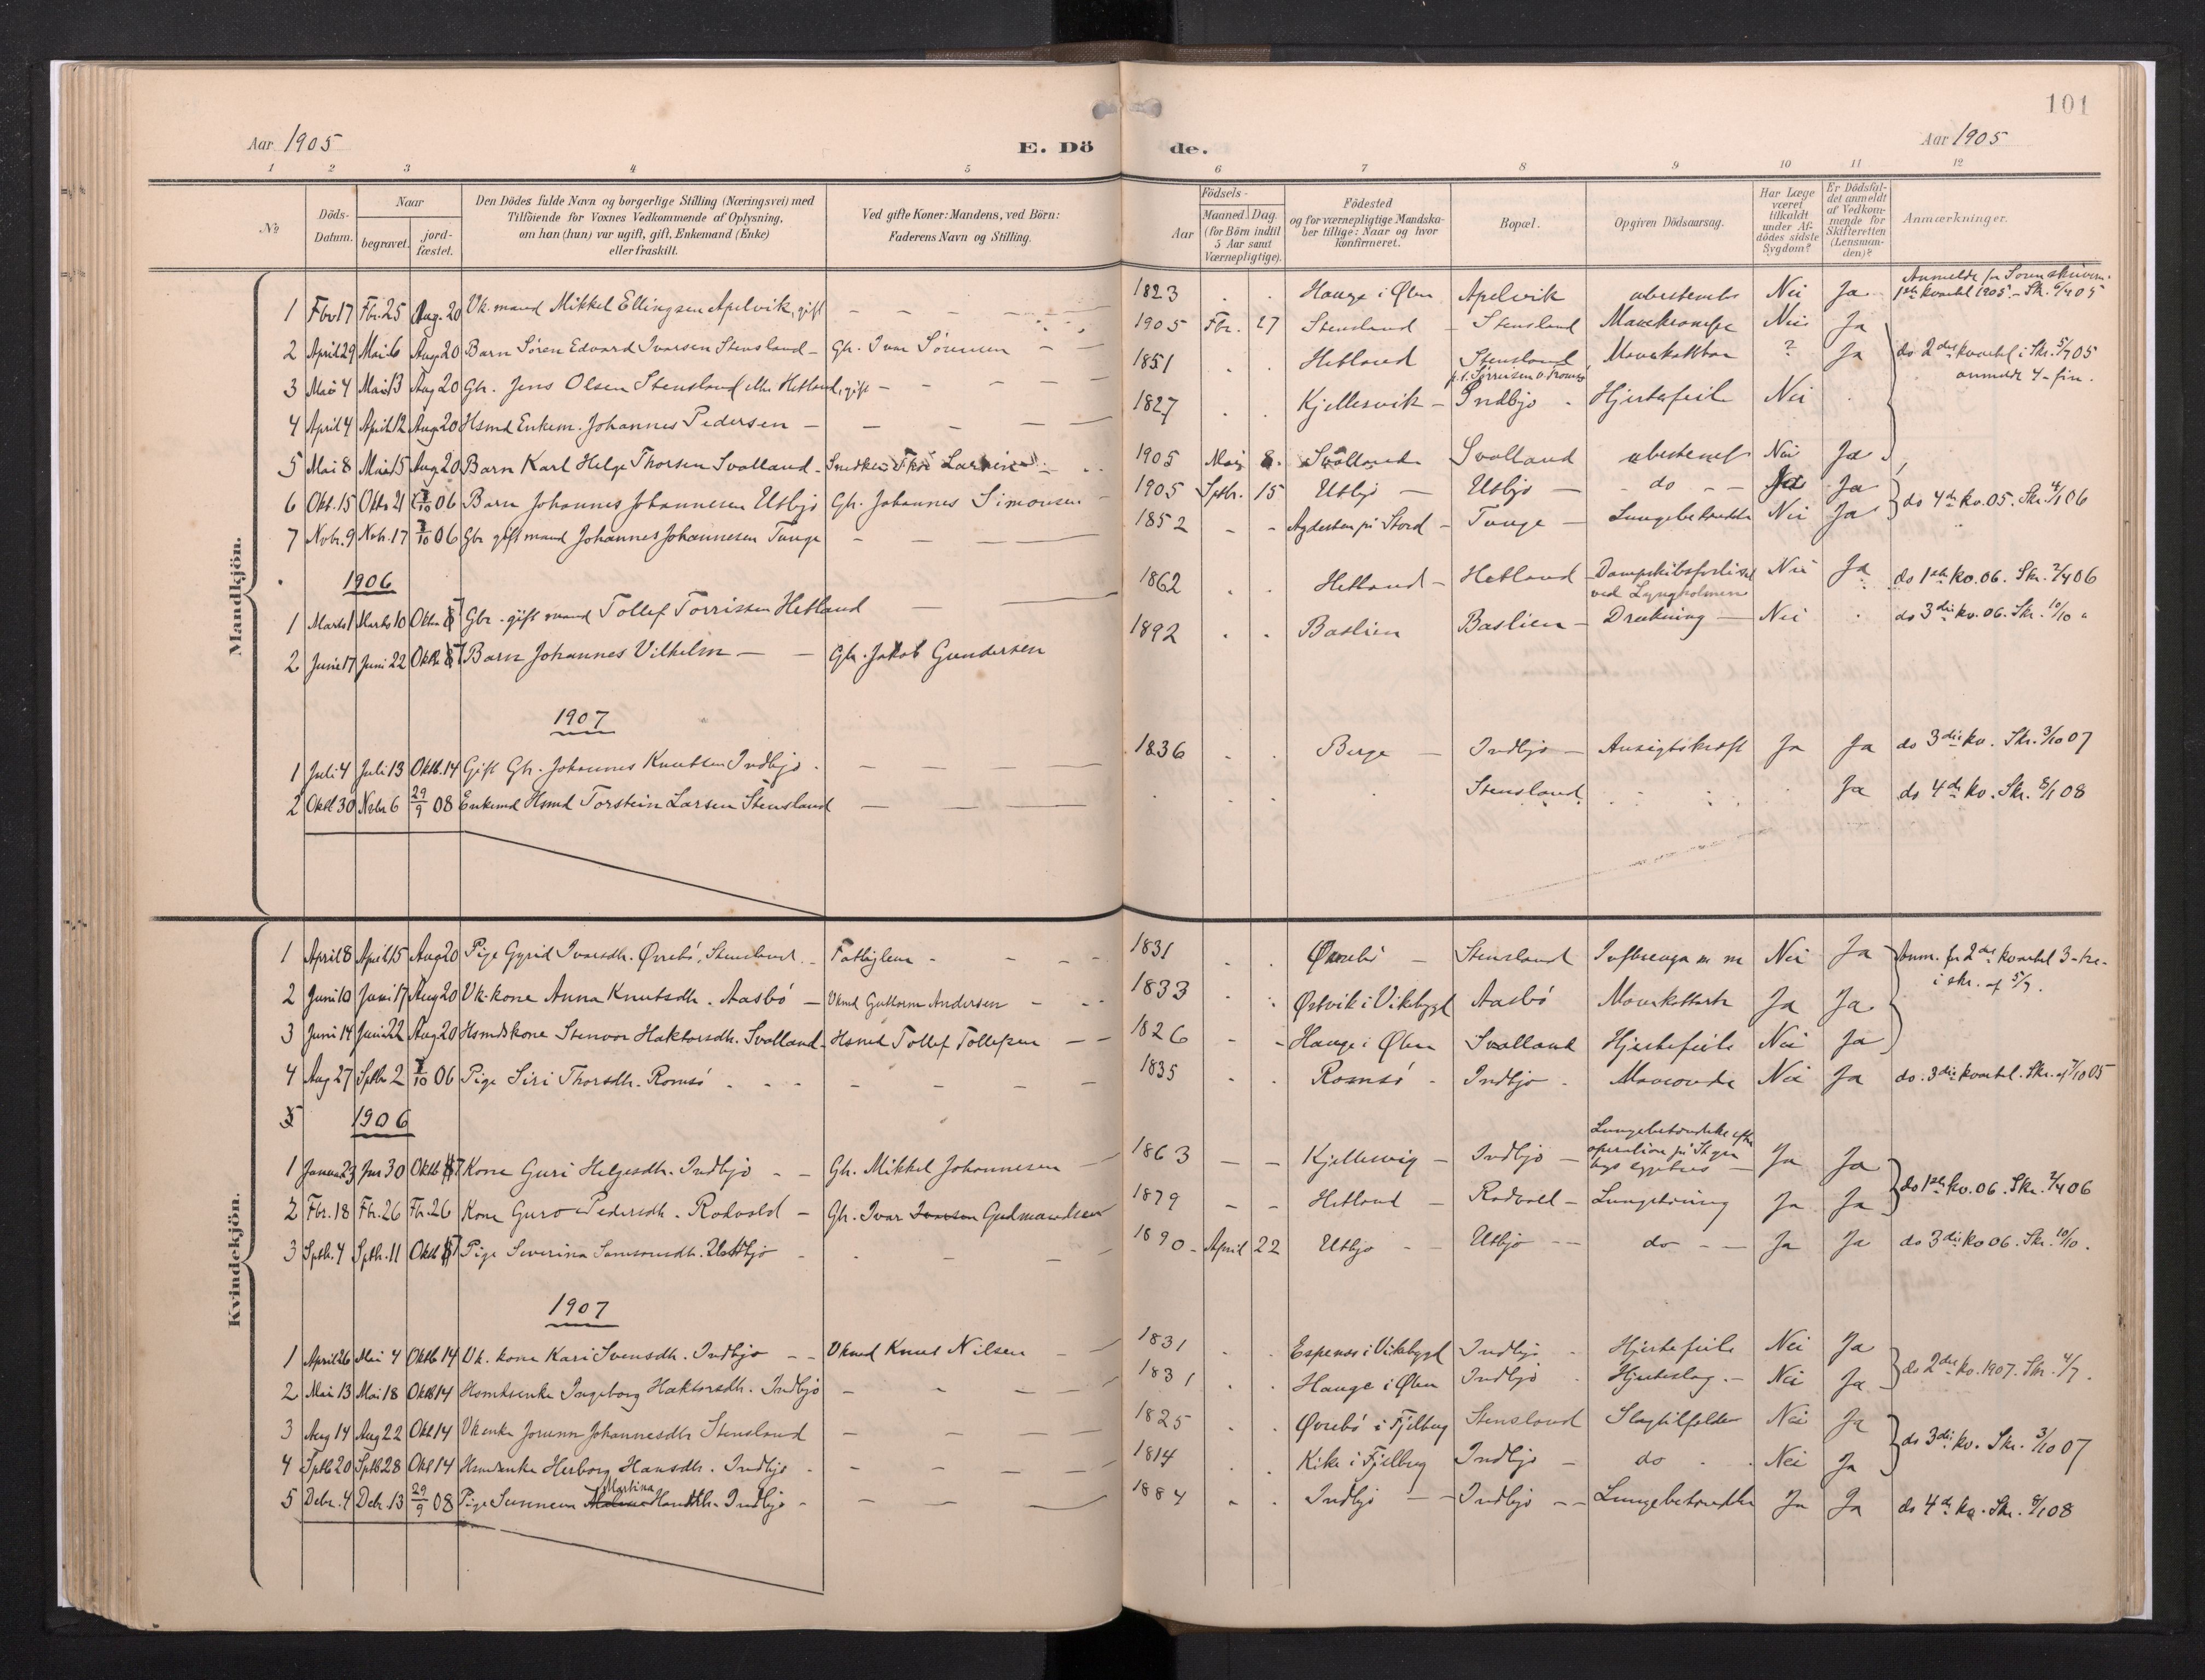 101
Aar 1905
E. Dö
de.
Aar 1905
1 2 3 4 5 6 7 8 9 10 11 12
№
Döds-Datum.
Naar
begravet.
jord-fæstet.
Den Dödes fulde Navn og borgerlige Stilling (Næringsvei) med
Tilföiende for Voxnes Vedkommende af Oplysning,
om han (hun) var ugift, gift, Enkemand (Enke)
eller fraskilt.
Ved gifte Koner: Mandens, ved Börn:
Faderens Navn og Stilling.
Födsels-
Aar
Maaned. Dag.
(for Börn indtil
5 Aar samt
Værnepligtige).
Födested
og for værnepligtige Mandska-
ber tillige: Naar og hvor
konfirmeret.
Bopæl.
Opgiven Dödsaarsag.
Har Læge
været
tilkaldt
under Af-
dödes sidste
Sygdom?
Er Dödsfal-
det anmeldt
af Vedkom-
mende for
Skifteretten
(Lensman-
den)?
Anmærkninger.
Mandkjön.
1 Fbr 17 Fbr. 25 Aug. 20 Vk. mand Mikkel Ellingsen Apelvik, gift 1823 Hauge i Ølen Apelvik ubestemt Nei Ja Anmeldt for Sorenskriveren 1ste kvartal 1905 - Skr. 6/4 05
2 April 29 Mai 6 Aug 20 Barn Sören Edvard Ivarsen Stensland Gbr. Ivar Sörensen 1905 Fbr. 27 Stensland Stensland Nei Ja do 2det kvartal i Skr. 5/7 05
3 Mai 4 Mai 13 Aug 20 Gbr. Jens Olsen Stensland eller Hetland, gift 1851 Hetland Stensland ? Ja anmeldt 4 - fire.
4 April 4 April 12 Aug 20 Hsmd Enkem. Johannes Pedersen 1827 Kjellesvik Indbjo Hjertefeil Nei
5 Mai 8 Mai 15 Aug 20 Barn Karl Helge Thorsen Svolland Snedker Thor Larsen 1905 Mai 8 Svolland Svolland ubestemt Nei Ja
6 Okt. 15 Oktb 21 06 Barn Johannes Johannesen Utbjo Gbr. Johannes Simonsen 1905 Sptbr. 15 Utbjo Utbjo do Ja do 4de kv. 05. Skr. 4/1 06
7 Novbr. 9 Nvbr. 17 06 Gbr gift mand Johannes Johannesen Tunge 1852 Agdesten på Stord Tunge Lungebetændelse Nei Ja
1906
1 Marts 1 Marts 10 Oktbr 8 Gbr. gift mand Tollef Torrissen Hetland 1862 Hetland Hetland Dampskibsforliset ved Lyngholmen Nei Ja do 1ste kv. 06. Skr. 2/4 06
2 Juni 17 Juni 22 Oktb 8 Barn Johannes Vilhelm Gbr. Jakob Gundersen 1892 Baslien Baslien Drukning Nei do 3die kv. 06. Skr. 10/10
1907
1 Juli 4 Juli 13 Oktb. 14 Gift Gbr. Johannes Knutsen Indbjo 1836 Berge Indbjo Ansigtskræft Ja Ja do 3die kv. Skr. 3/10 07
2 Oktb 30 Nvbr 6 29/9 08 Enkemd Hsmd Torstein Larsen Stensland Stensland Ja do 4de kv. Skr. 8/1 08
Kvindekjön.
1 April 8 April 15 Aug 20 Pige Gyrid Ivarsdtr. Øvrebö, Stensland Fattiglem 1831 Øvrebö Stensland Influenza m m Nei Ja Anm. for 2det kvartal 3 - tre - i skr. af 5/7.
2 Juni 10 Juni 17 Aug 20 Vk. kone Anna Knutsdtr. Aasbö Vkmd Guttorm Andersen 1833 Østvik i Vikebygd Aasbö Mavekatarrh Ja Ja
3 Juni 14 Juni 22 Aug 20 Hsmdskone Stenvor Haktorsdtr. Svolland Hsmd Tollef Tollefsen 1826 Hauge i Ølen Svolland Hjertefeil Nei Ja
4 Aug 27 Sptbr 2 06 Pige Siri Thorsdtr. Romsö 1835 Romsö Indbjo Maveonde Nei Ja do. 3die kvartal. Skr. af 7/10 05
1906
1 Januar 23 Jan 30 Oktb 7 Kone Guri Helgesdtr. Indbjo Gbr. Mikkel Johannesen 1863 Kjellesvig Indbjo Lungebetændelse efter operation på Ja Ja do 1ste kv. 06. Skr. 2/4 06
2 Fbr. 18 Fbr. 26 Fbr. 26 Kone Guro Pedersdtr. Rodvold Gbr. Ivar Ivarsen Gudmundsen 1879 Hetland Rodvoll Lungetæring Ja Ja
3 Sptb. 4 Sptb. 11 Oktb 7 Pige Severina Samsonsdtr. Utbjo 1890 April 22 Utbjo Utbjo do Ja Ja do 3die kv 06. Skr. 10/10.
1907
1 April 26 Mai 4 Oktb 14 Vk. kone Kari Svensdtr. Indbjo Vkmd Knut Nilsen 1831 Espenes i Vikebygd Indbjo Hjertefeil Nei Ja do 2det kv. 1907. Skr. 4/7.
2 Mai 13 Mai 18 Oktb 14 Hsmdsenke Ingeborg Haktorsdtr. Indbjo 1831 Hauge i Ølen Indbjo Hjerteslag Nei Ja
3 Aug 14 Aug 22 Okt 14 Vkenke Jorunn Johannesdtr Stensland 1825 Øvrebö i Fjelberg Stensland Slagtilfælde Nei Ja do 3die kv. Skr. 3/10 07
4 Sptb 20 Sptb 28 Okt 14 Hsmdenke Herborg Hansdtr. Indbjo 1814 Kike i Fjelberg Indbjo do Nei Ja
5 Debr. 4 Debr. 13 29/9 08 Pige Sunneva Martina Hansdtr. Indbjo 1884 Indbjo Indbjo Lungebetændelse Ja Ja do 4de kv. Skr. 8/1 08